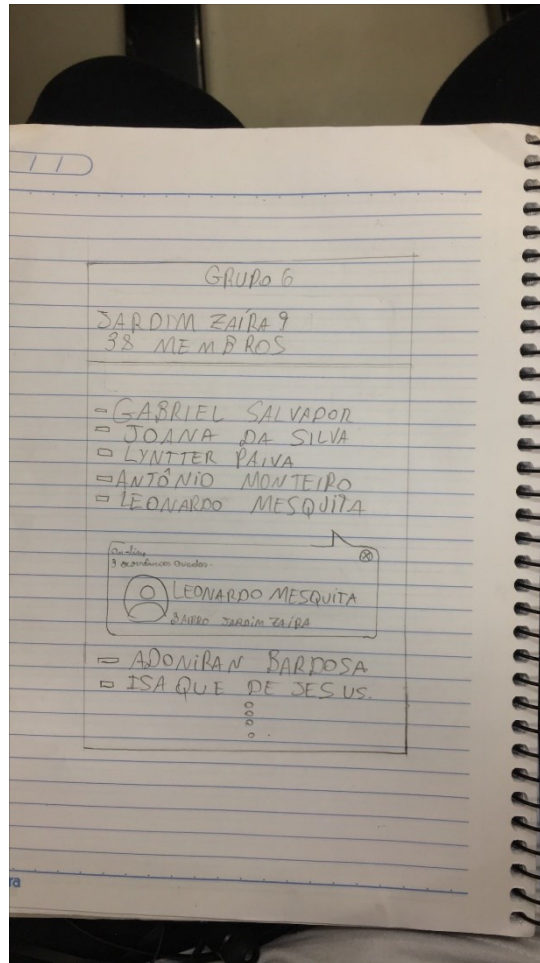 GRUPO 6
JARDIM ZAÍRA 9
38 MEMBROS
- GABRIEL SALVADOR
- JOANA DA SILVA
- LYNTTER PAIVA
- ANTÔNIO MONTEIRO
- LEONARDO MESQUITA
Online
3 ocorrências
LEONARDO MESQUITA
BAIRRO JARDIM ZAÍRA
- ADONIRAN BARBOSA
- ISAQUE DE JESUS.